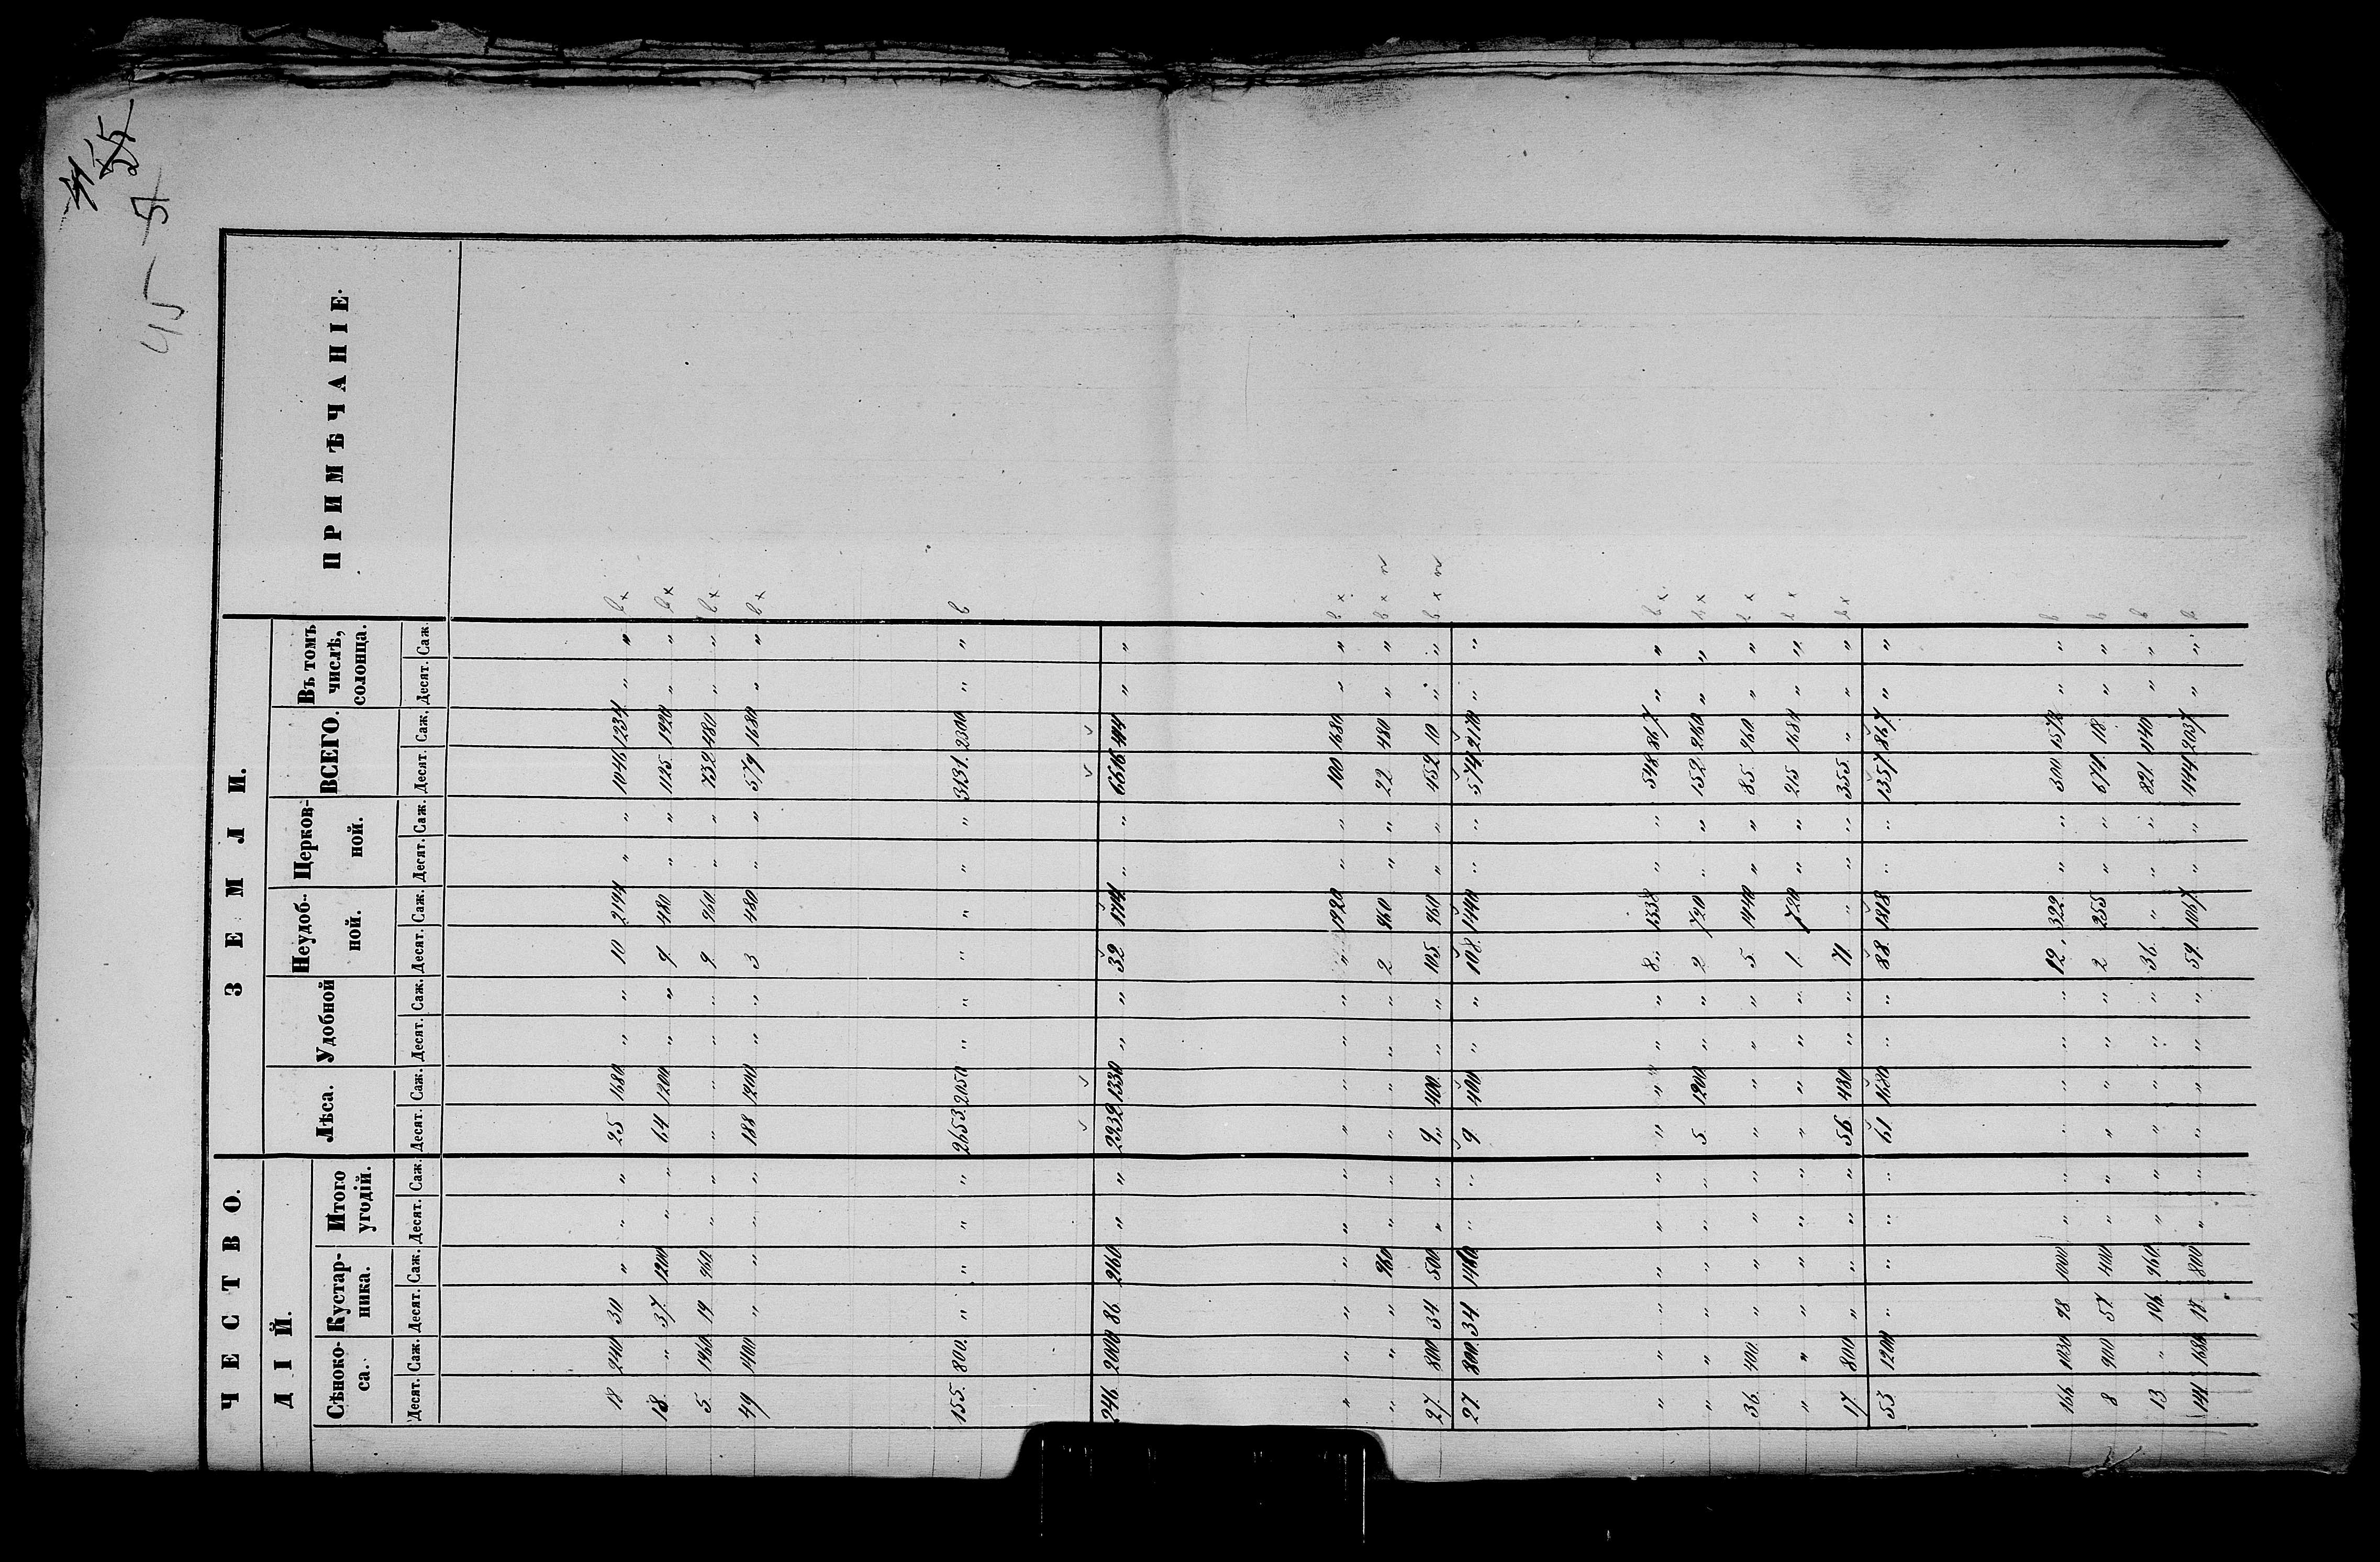 45
ЧЕСТВО. ЗЕМЛИ. ПРИМѢЧАНІЕ.
ДІЙ.
Сѣнокоса. Кустарника. Итого угодій. Лѣса. Удобной Неудобной. Церковной. ВСЕГО. Въ томъ числѣ, солонца.
Десят. Саж. Десят. Саж. Десят. Саж. Десят. Саж. Десят. Саж. Десят. Саж. Десят. Саж. Десят. Саж. Десят. Саж.
18 240 30 " " " 25 1680 " " 10 2194 " " 1046 1234 " "
18 " 37 1200 " " 64 1200 " " 9 480 " " 1125 1920 " "
5 1960 19 960 " " " " " " 9 960 " " 732 480 " "
49 400 " " " " 188 1200 " " 3 480 " " 579 1680 " "
155 800 " " " " 2653 2050 " " " " " " 3131 2300 " "
246 2000 86 2160 " " 2932 1330 " " 32 1714 " " 6616 414 " "
" " " " " " " " " " " 1920 " " 100 1680 " "
" " " 960 " " " " " " 2 960 " " 22 480 " "
27 800 34 500 " " 9 400 " " 105 960 " " 452 10 " "
27 800 34 1460 " " 9 400 " " 108 1440 " " 574 2170 " "
" " " " " " " " " " 8 1338 " " 548 867 " "
" " " " " " 5 1200 " " 2 720 " " 152 2160 " "
36 400 " " " " " " " " 5 1440 " " 85 960 " "
" " " " " " " " " " 1 720 " " 215 1680 " "
17 800 " " " " 56 480 " " 71 " " " 355 " " "
53 1200 " " " " 61 1680 " " 88 1818 " " 1357 867 " "
166 1030 98 1000 " " " " " " 12 322 " " 500 1572 " "
8 900 57 400 " " " " " " 2 255 " " 674 18 " "
13 " 106 960 " " " " " " 36 " " " 821 1140 " "
141 1686 18 800 " " " " " " 59 1067 " " 444 2037 " "